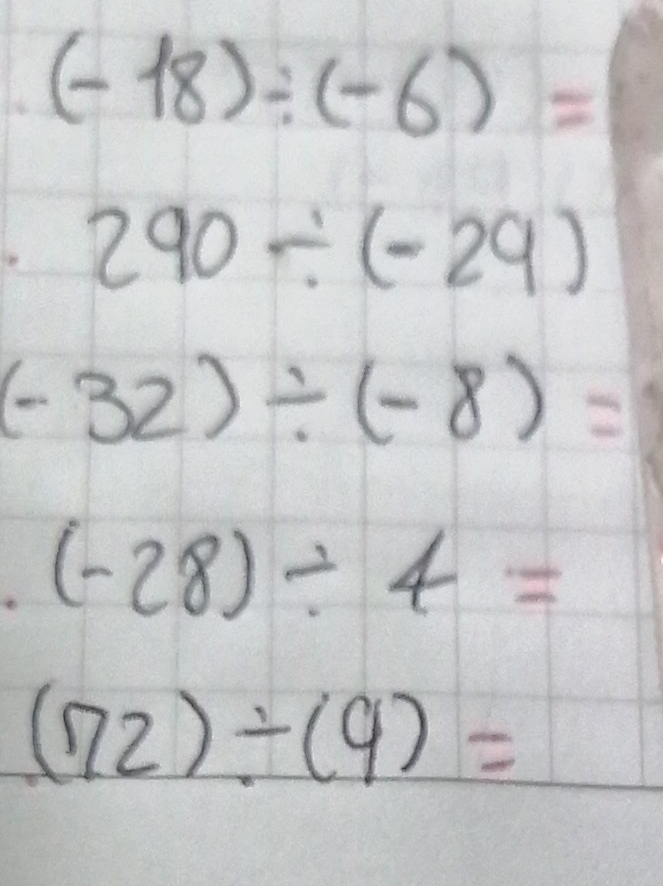 (-18)÷(-6) =
290 ÷ (-29)
(-32) ÷ (-8) =
(-28) ÷ 4 =
(72) ÷ (9) =